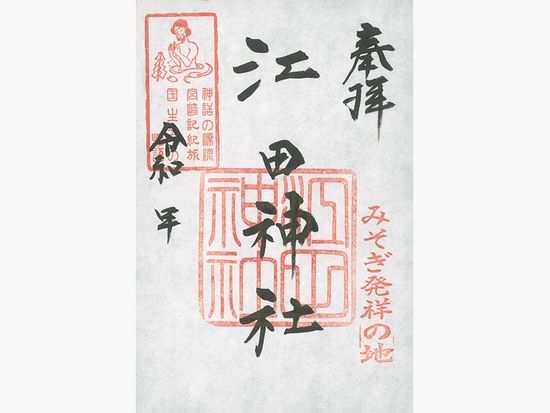 奉拝
みそぎ発祥の地
江田神社
江田神社
神話の源流
宮崎記紀旅
国生
令和 年